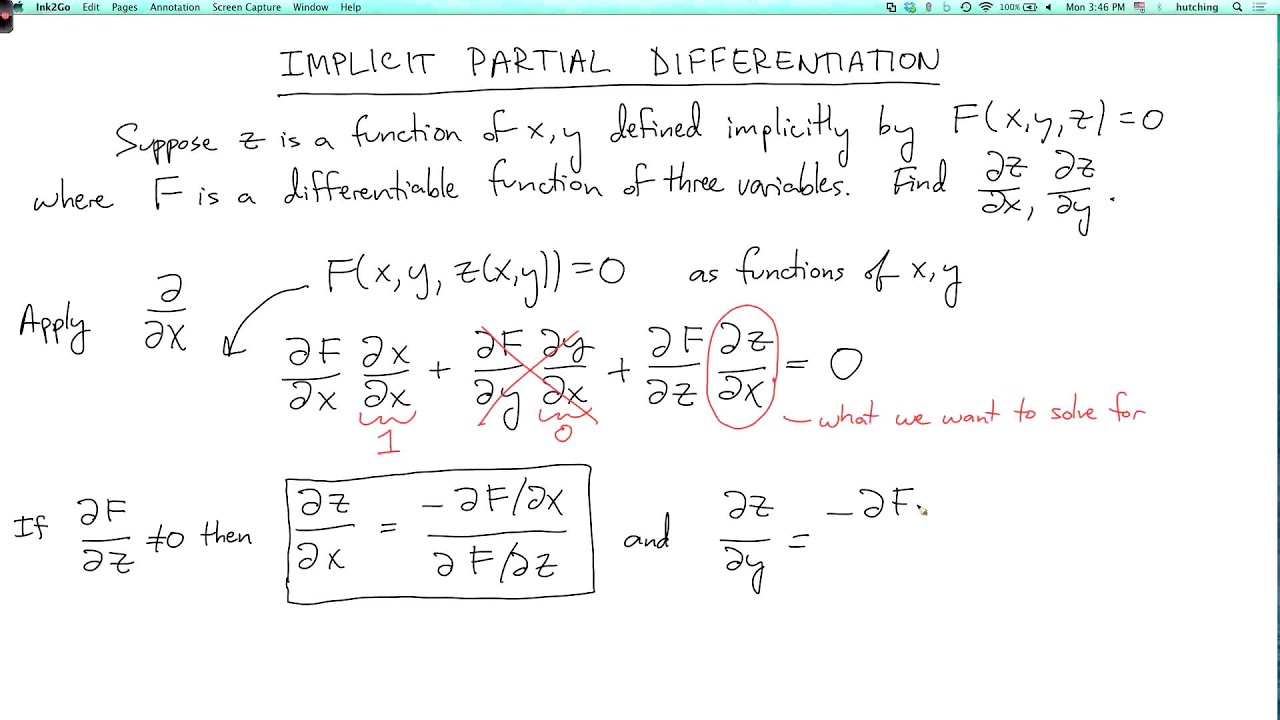 Ink2Go Edit Pages Annotation Screen Capture Window Help 100% Mon 3:46 PM hutching
IMPLICIT PARTIAL DIFFERENTIATION
Suppose z is a function of x, y defined implicitly by F(x,y,z)=0
where F is a differentiable function of three variables. Find ∂z/∂x, ∂z/∂y.
F(x, y, z(x,y))=0 as functions of x, y
Apply ∂/∂x
∂F/∂x ∂x/∂x + ∂F/∂y ∂y/∂x + ∂F/∂z ∂z/∂x = 0
1 0 what we want to solve for
If ∂F/∂z ≠0 then ∂z/∂x = -∂F/∂x / ∂F/∂z and ∂z/∂y = -∂F